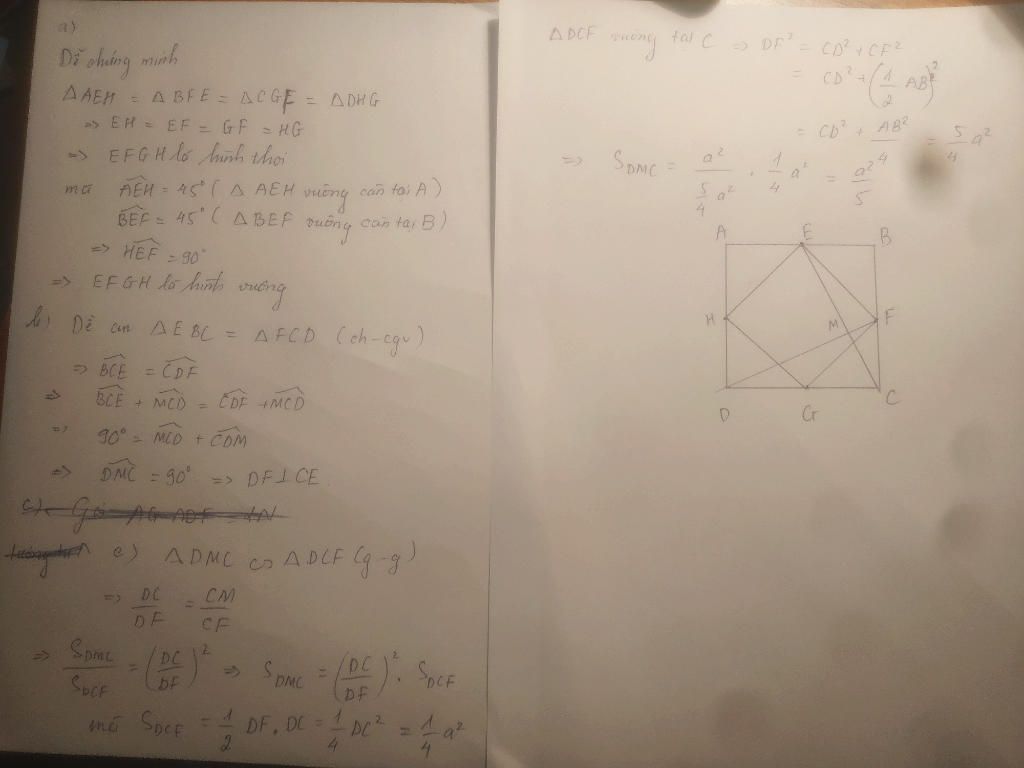 a)
Dễ chứng minh
△AEH = △BFE = △CGF = △DHG
=> EH = EF = GF = HG
=> EFGH là hình thoi
mà AEH = 45° (△ AEH vuông cân tại A)
BEF = 45° (△ BEF vuông cân tại B)
=> HEF = 90°
=> EFGH là hình vuông
b) Dễ cm △EBC = △FCD (ch-cgv)
=> BCE = CDF
=> BCE + MCD = CDF + MCD
=> 90° = MCD + CDM
=> DMC = 90° => DF⊥CE
c) △DMC ∽ △DCF (g-g)
=> DC/DF = CM/CF
=> S_DMC/S_DCF = (DC/DF)² => S_DMC = (DC/DF)² . S_DCF
mà S_DCF = 1/2 DF . DC = 1/4 DC² = 1/4 a²
△DCF vuông tại C => DF² = CD² + CF²
= CD² + (1/2 AB)²
= CD² + AB²/4 = 5/4 a²
=> S_DMC = a²/(5/4 a²) . 1/4 a² = a²/5
A E B
H M F
D G C